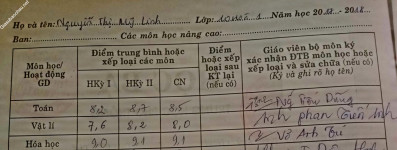 Họ và tên: Nguyễn Thị Mỹ Linh Lớp: 10 Năm học 2018 - 2018
Ban: Các môn học nâng cao:
Môn học/ Hoạt động GD
Điểm trung bình hoặc xếp loại các môn
HKỳ I HKỳ II CN
Điểm hoặc xếp loại sau KT lại (nếu có)
Giáo viên bộ môn ký xác nhận ĐTB môn học hoặc xếp loại và sửa chữa (nếu có)
(Ký và ghi rõ họ tên)
Toán 8,2 8,7 8,5 Dũng
Vật lí 7,6 8,2 8,0 phan Tiến Anh
Hóa học 9.0 9.1 9.1 Võ Anh